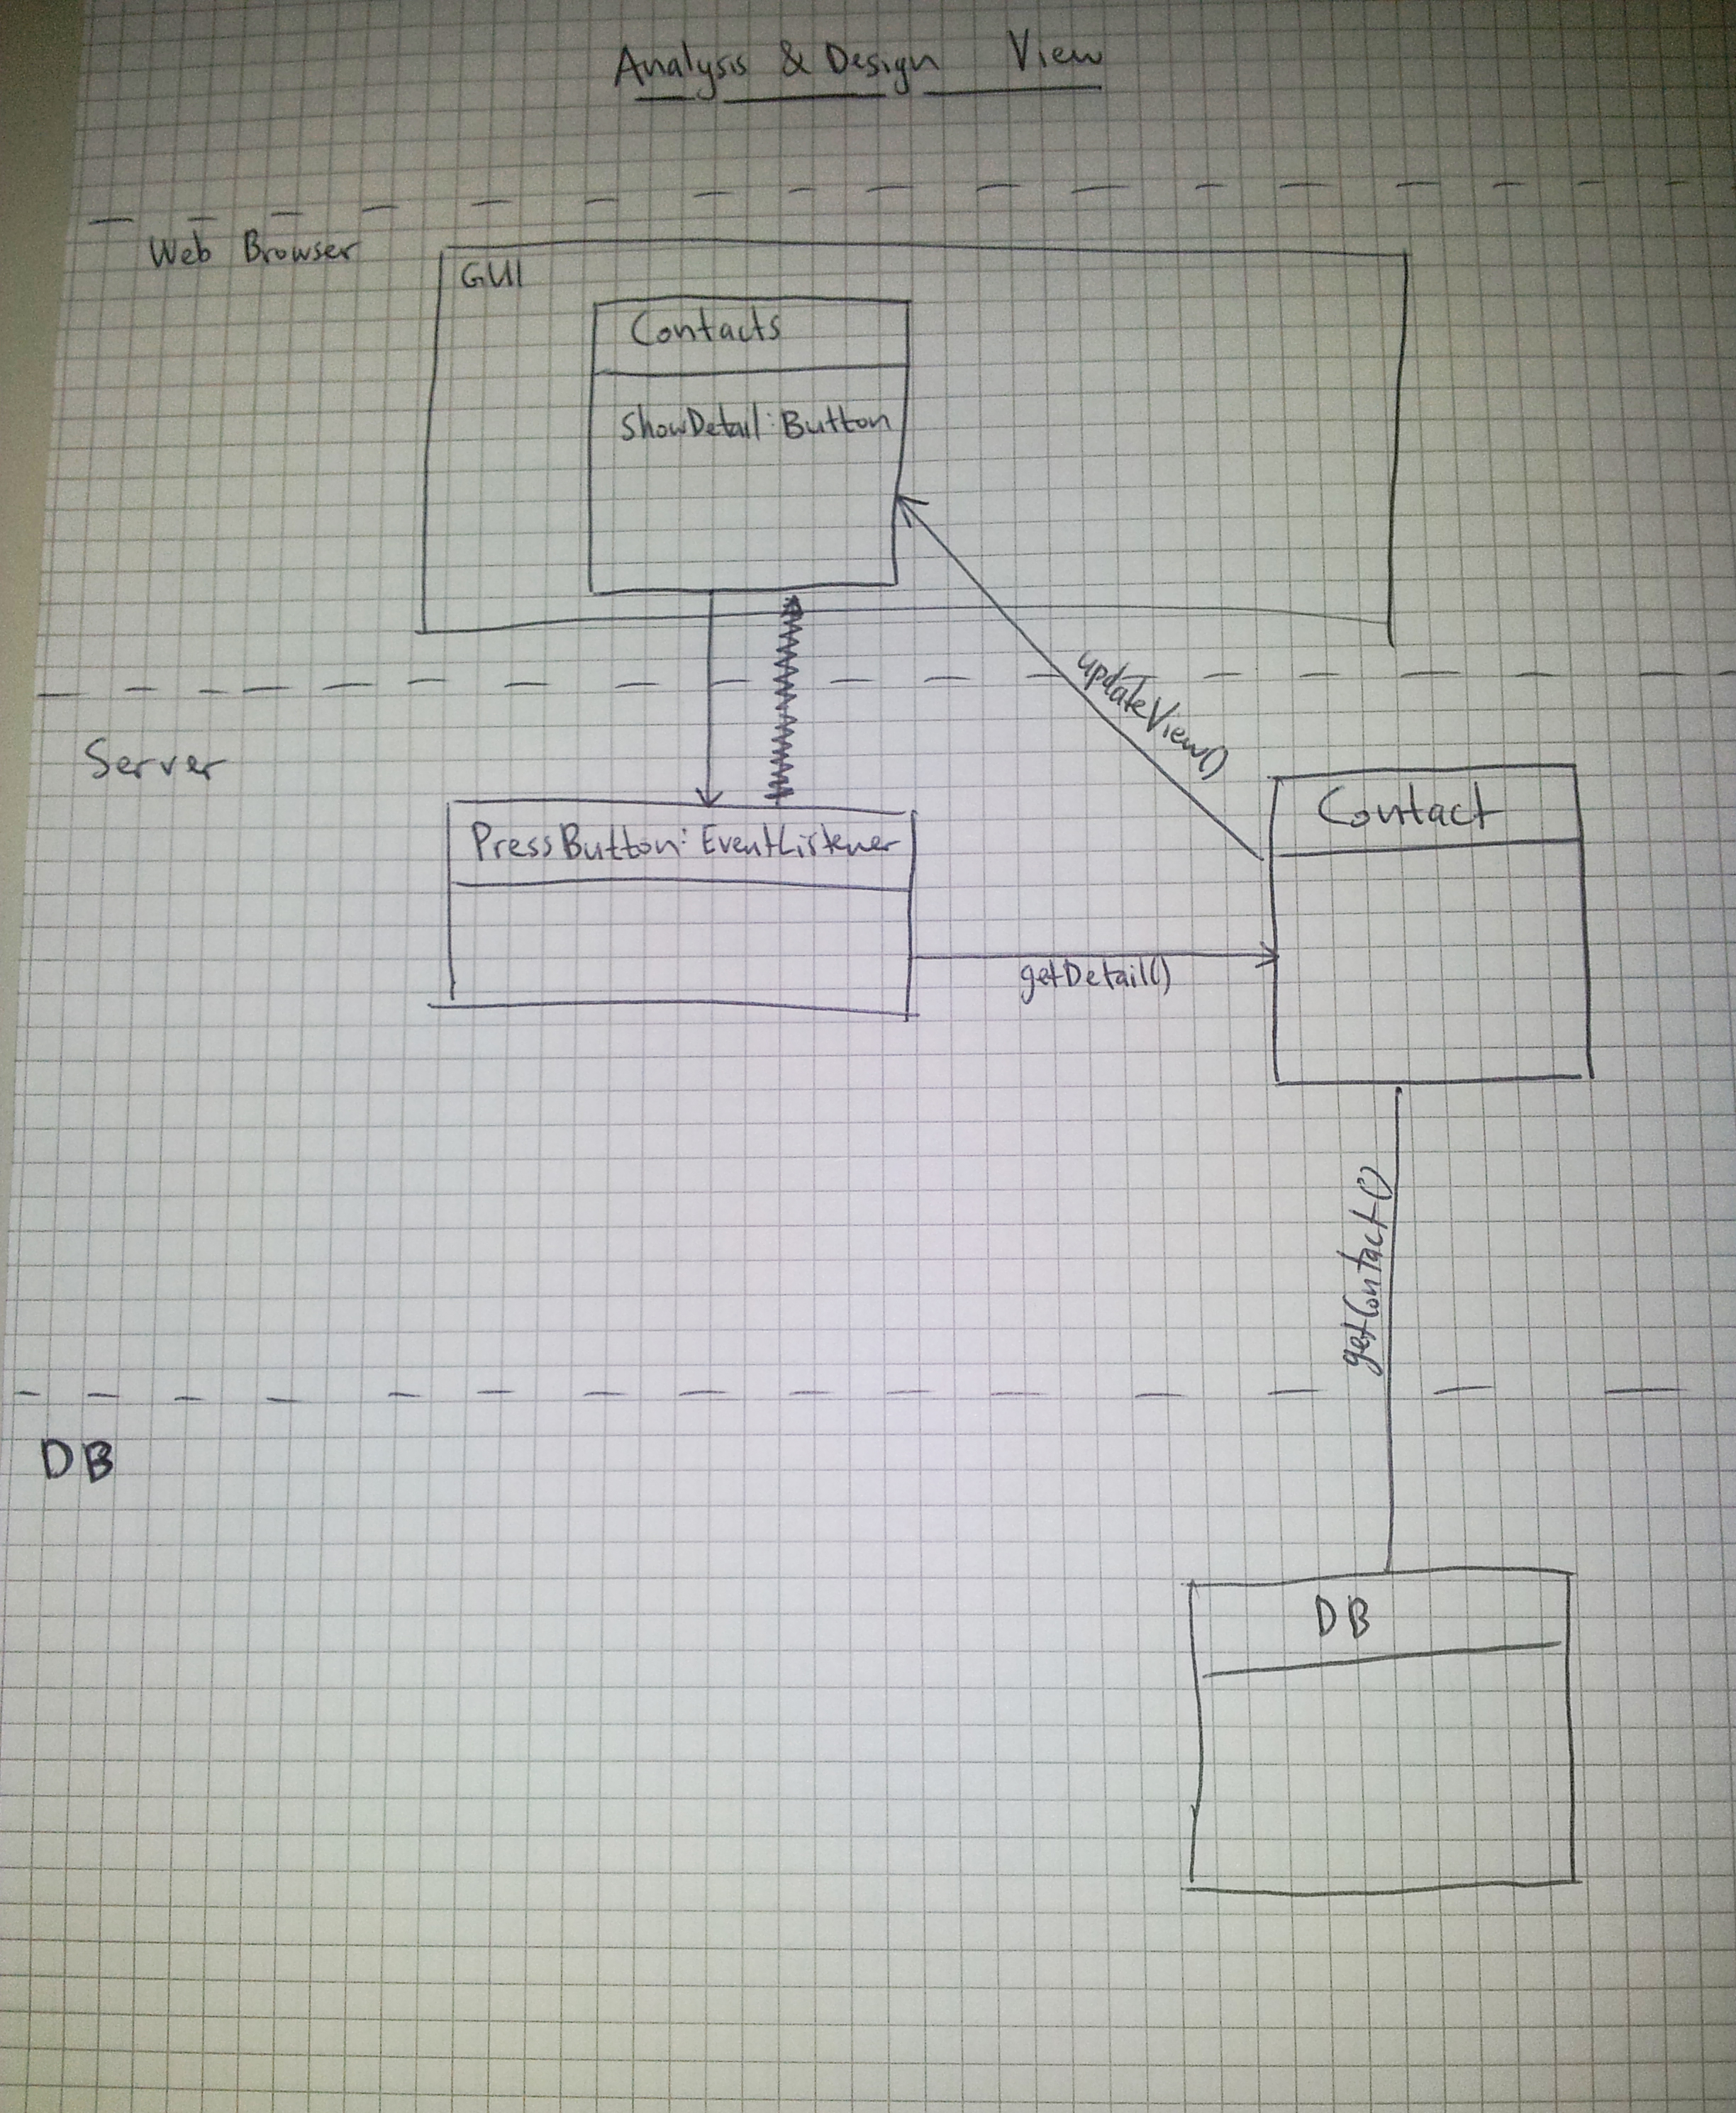 Analysis & Design View
Web Browser
GUI
Contacts
showDetail:Button
updateView()
Server
PressButton:EventListener
Contact
getDetail()
getContact()
DB
DB